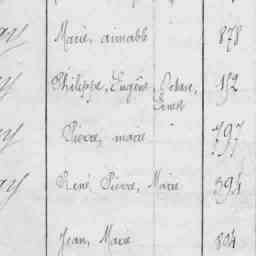 Marie, aimable 878
Philippe, Eugène, Johan, 152
Ernest
Pierre, marie 797
René, Pierre, Marie 394
Jean, Marie 804